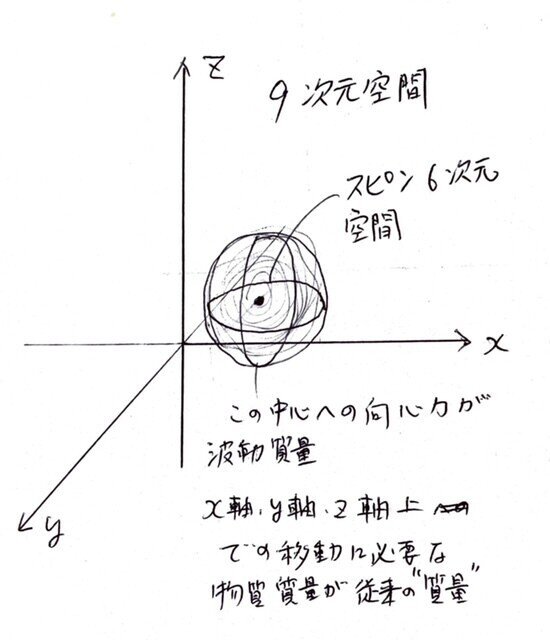 Z
9次元空間
スピン6次元
空間
x
この中心への向心力が
波動質量
y
x軸、y軸、z軸上
での移動に必要な
物質質量が従来の"質量"